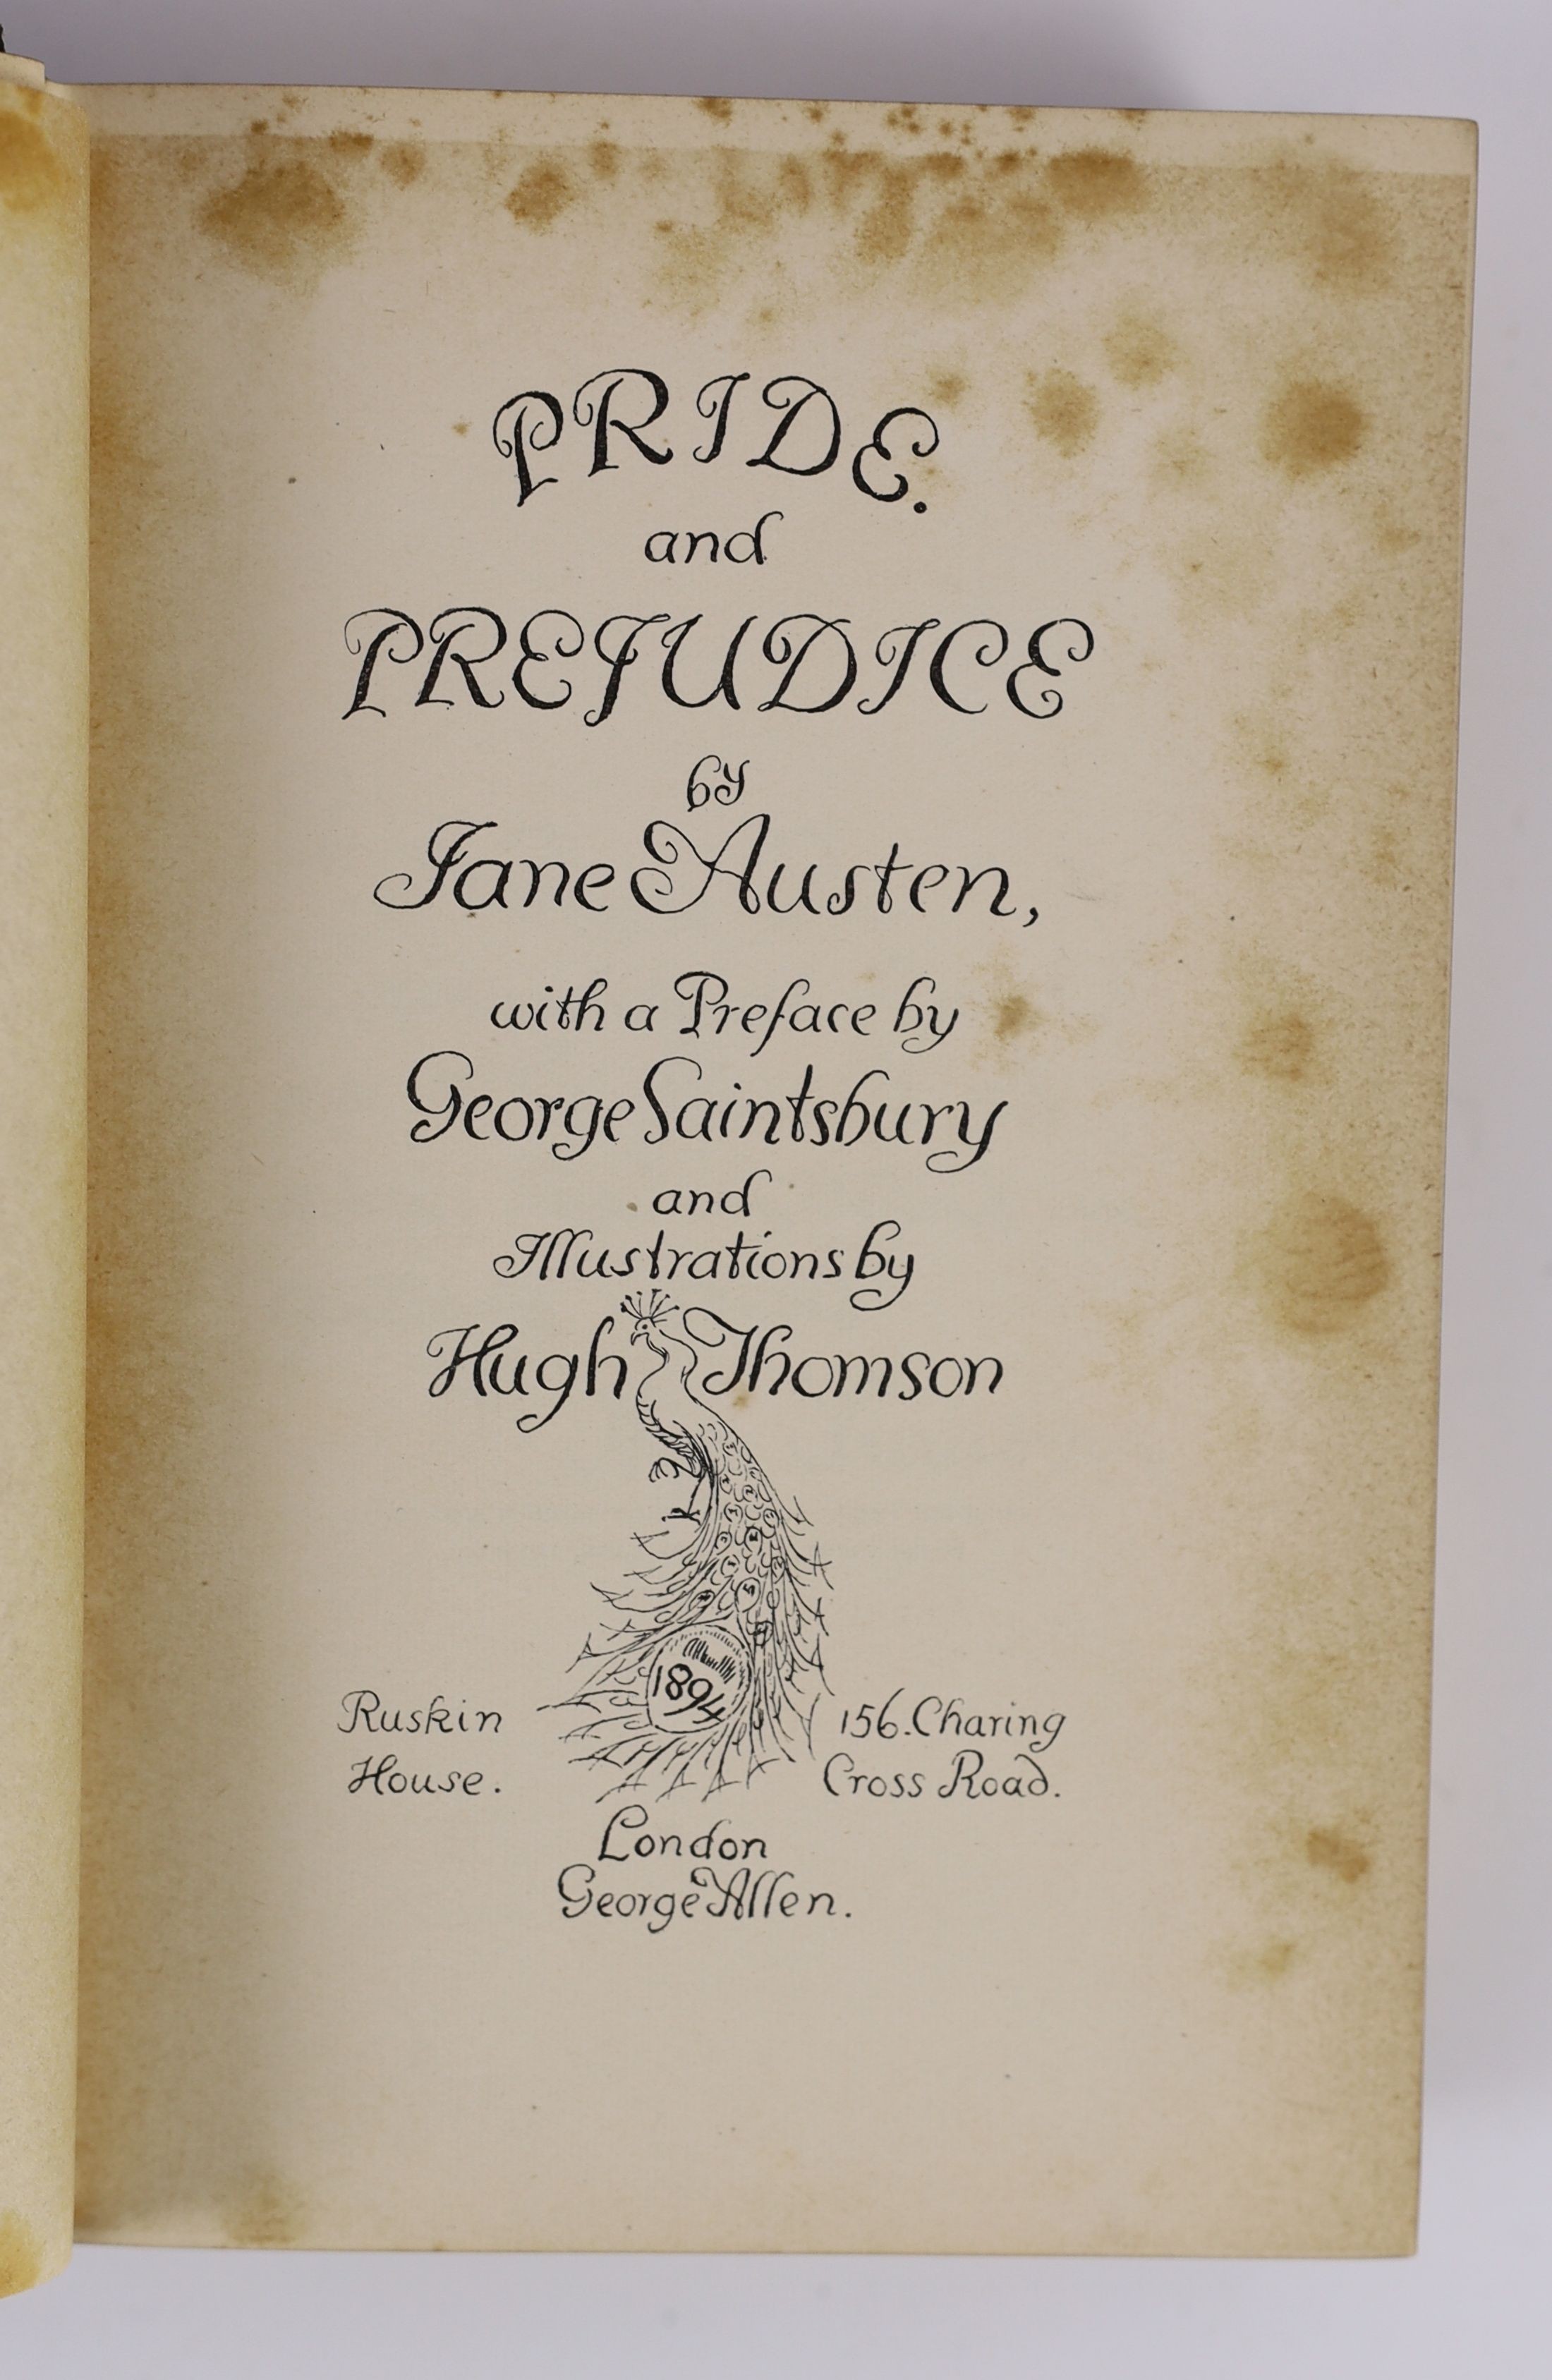 PRIDE.
and
PREJUDICE
by
Jane Austen,
with a Preface by
George Saintsbury
and
Illustrations by
Hugh Thomson
1894
Ruskin
House.
156. Charing
Cross Road.
London
George Allen.